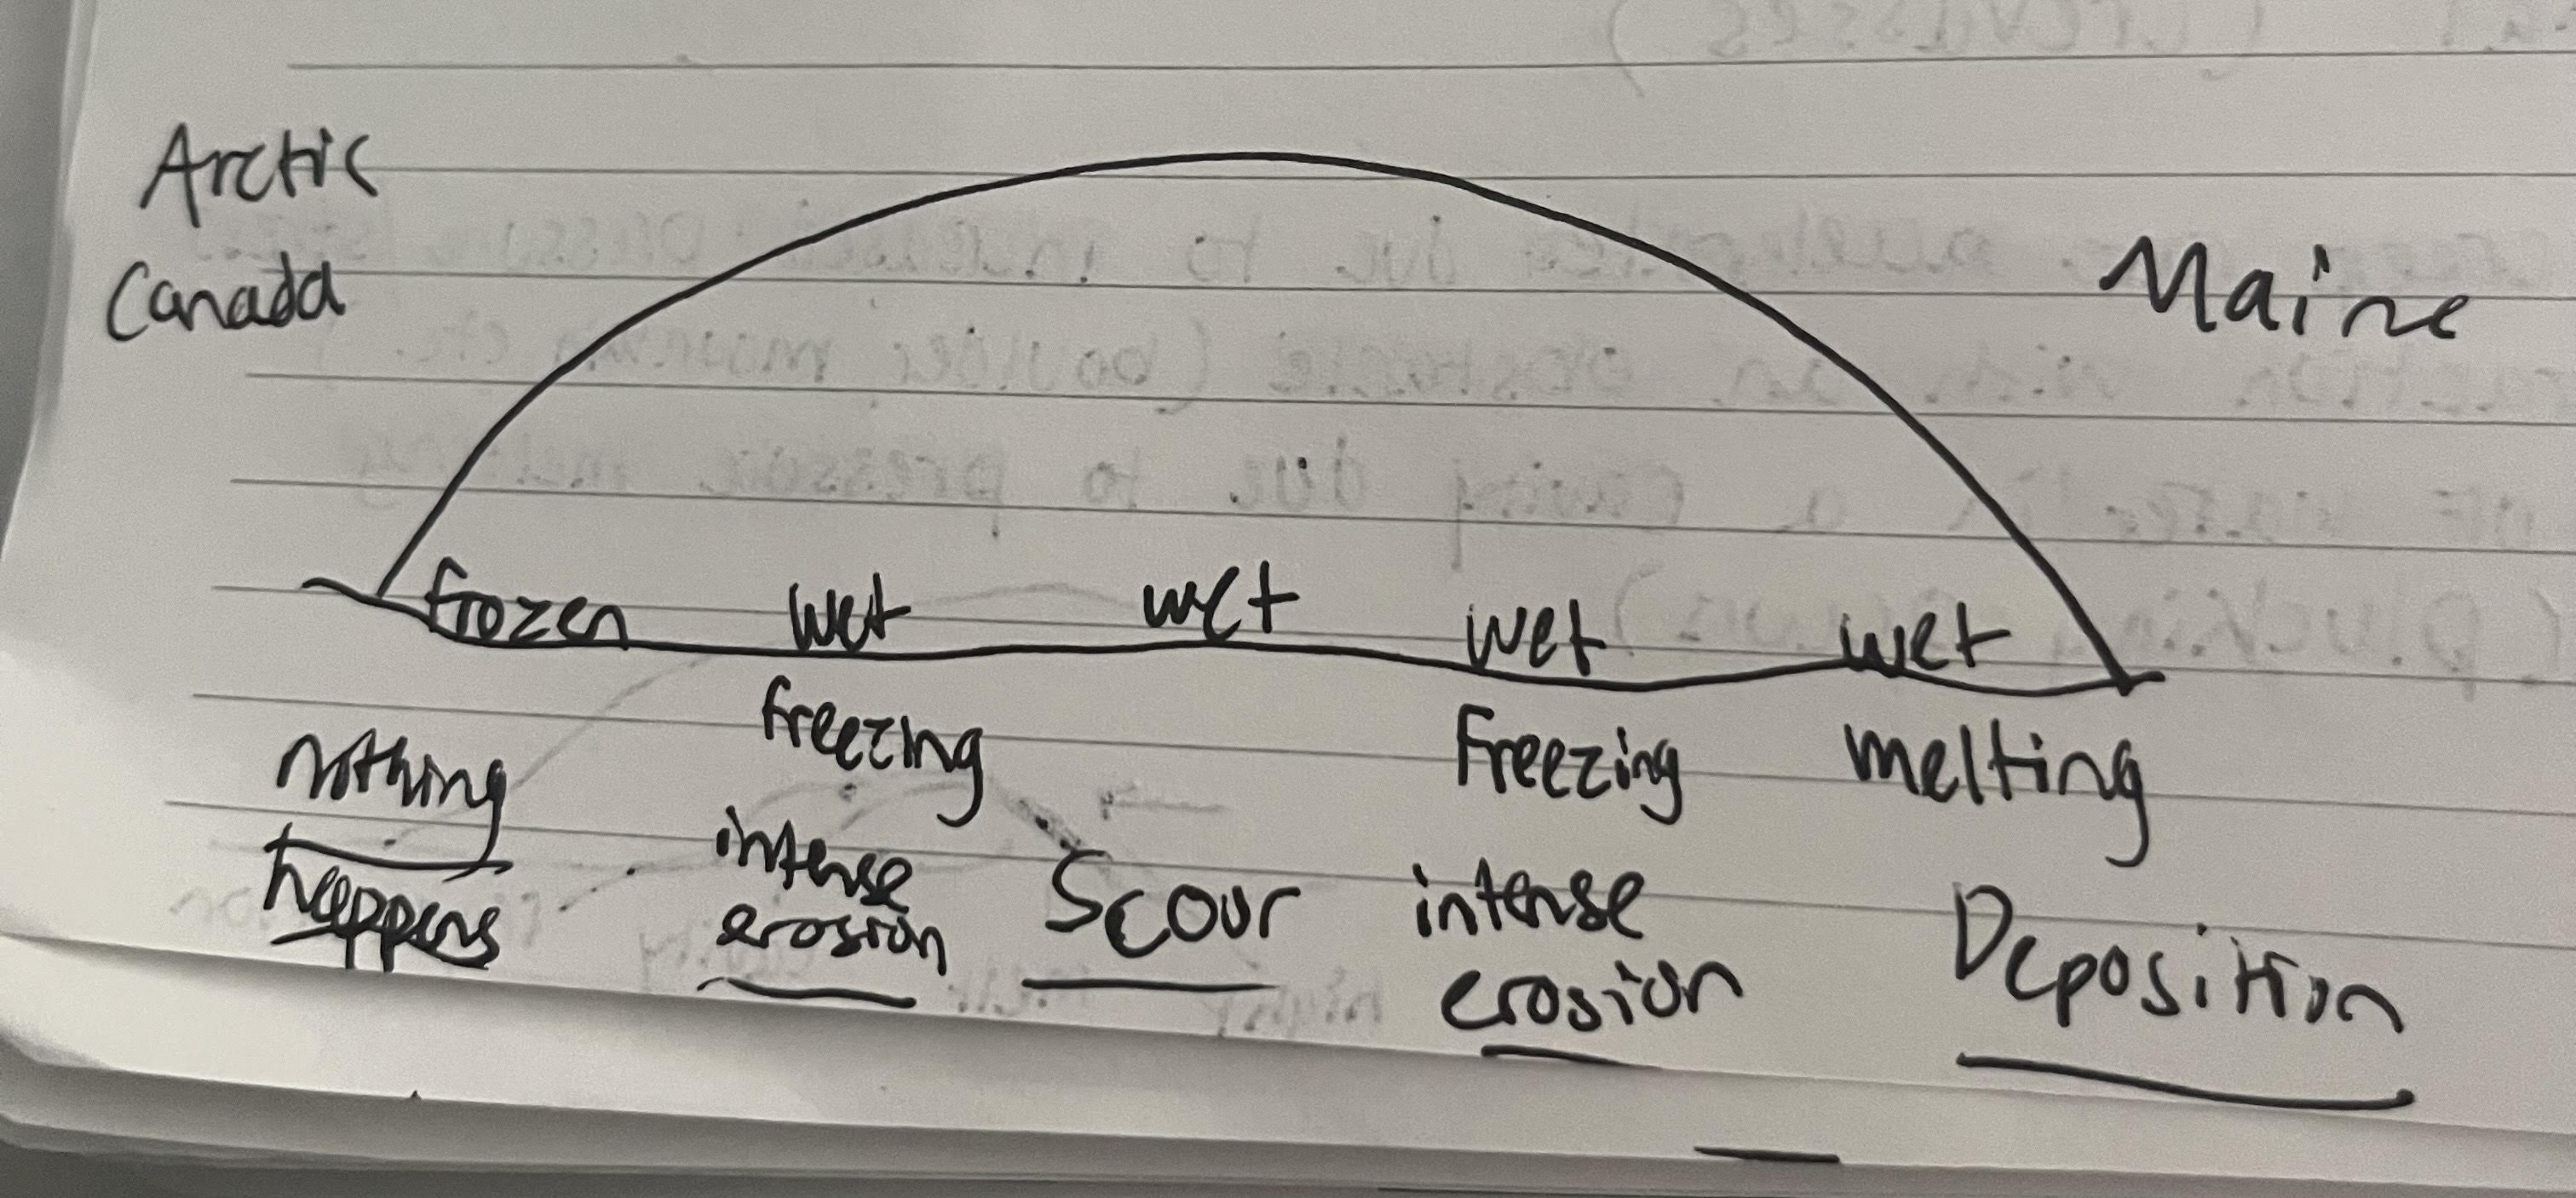 Arctic
Canada
Maine
frozen wet wct wet wet
freezing Freezing melting
nothing
happens
intense
erosion
Scour
intense
erosion
Deposition